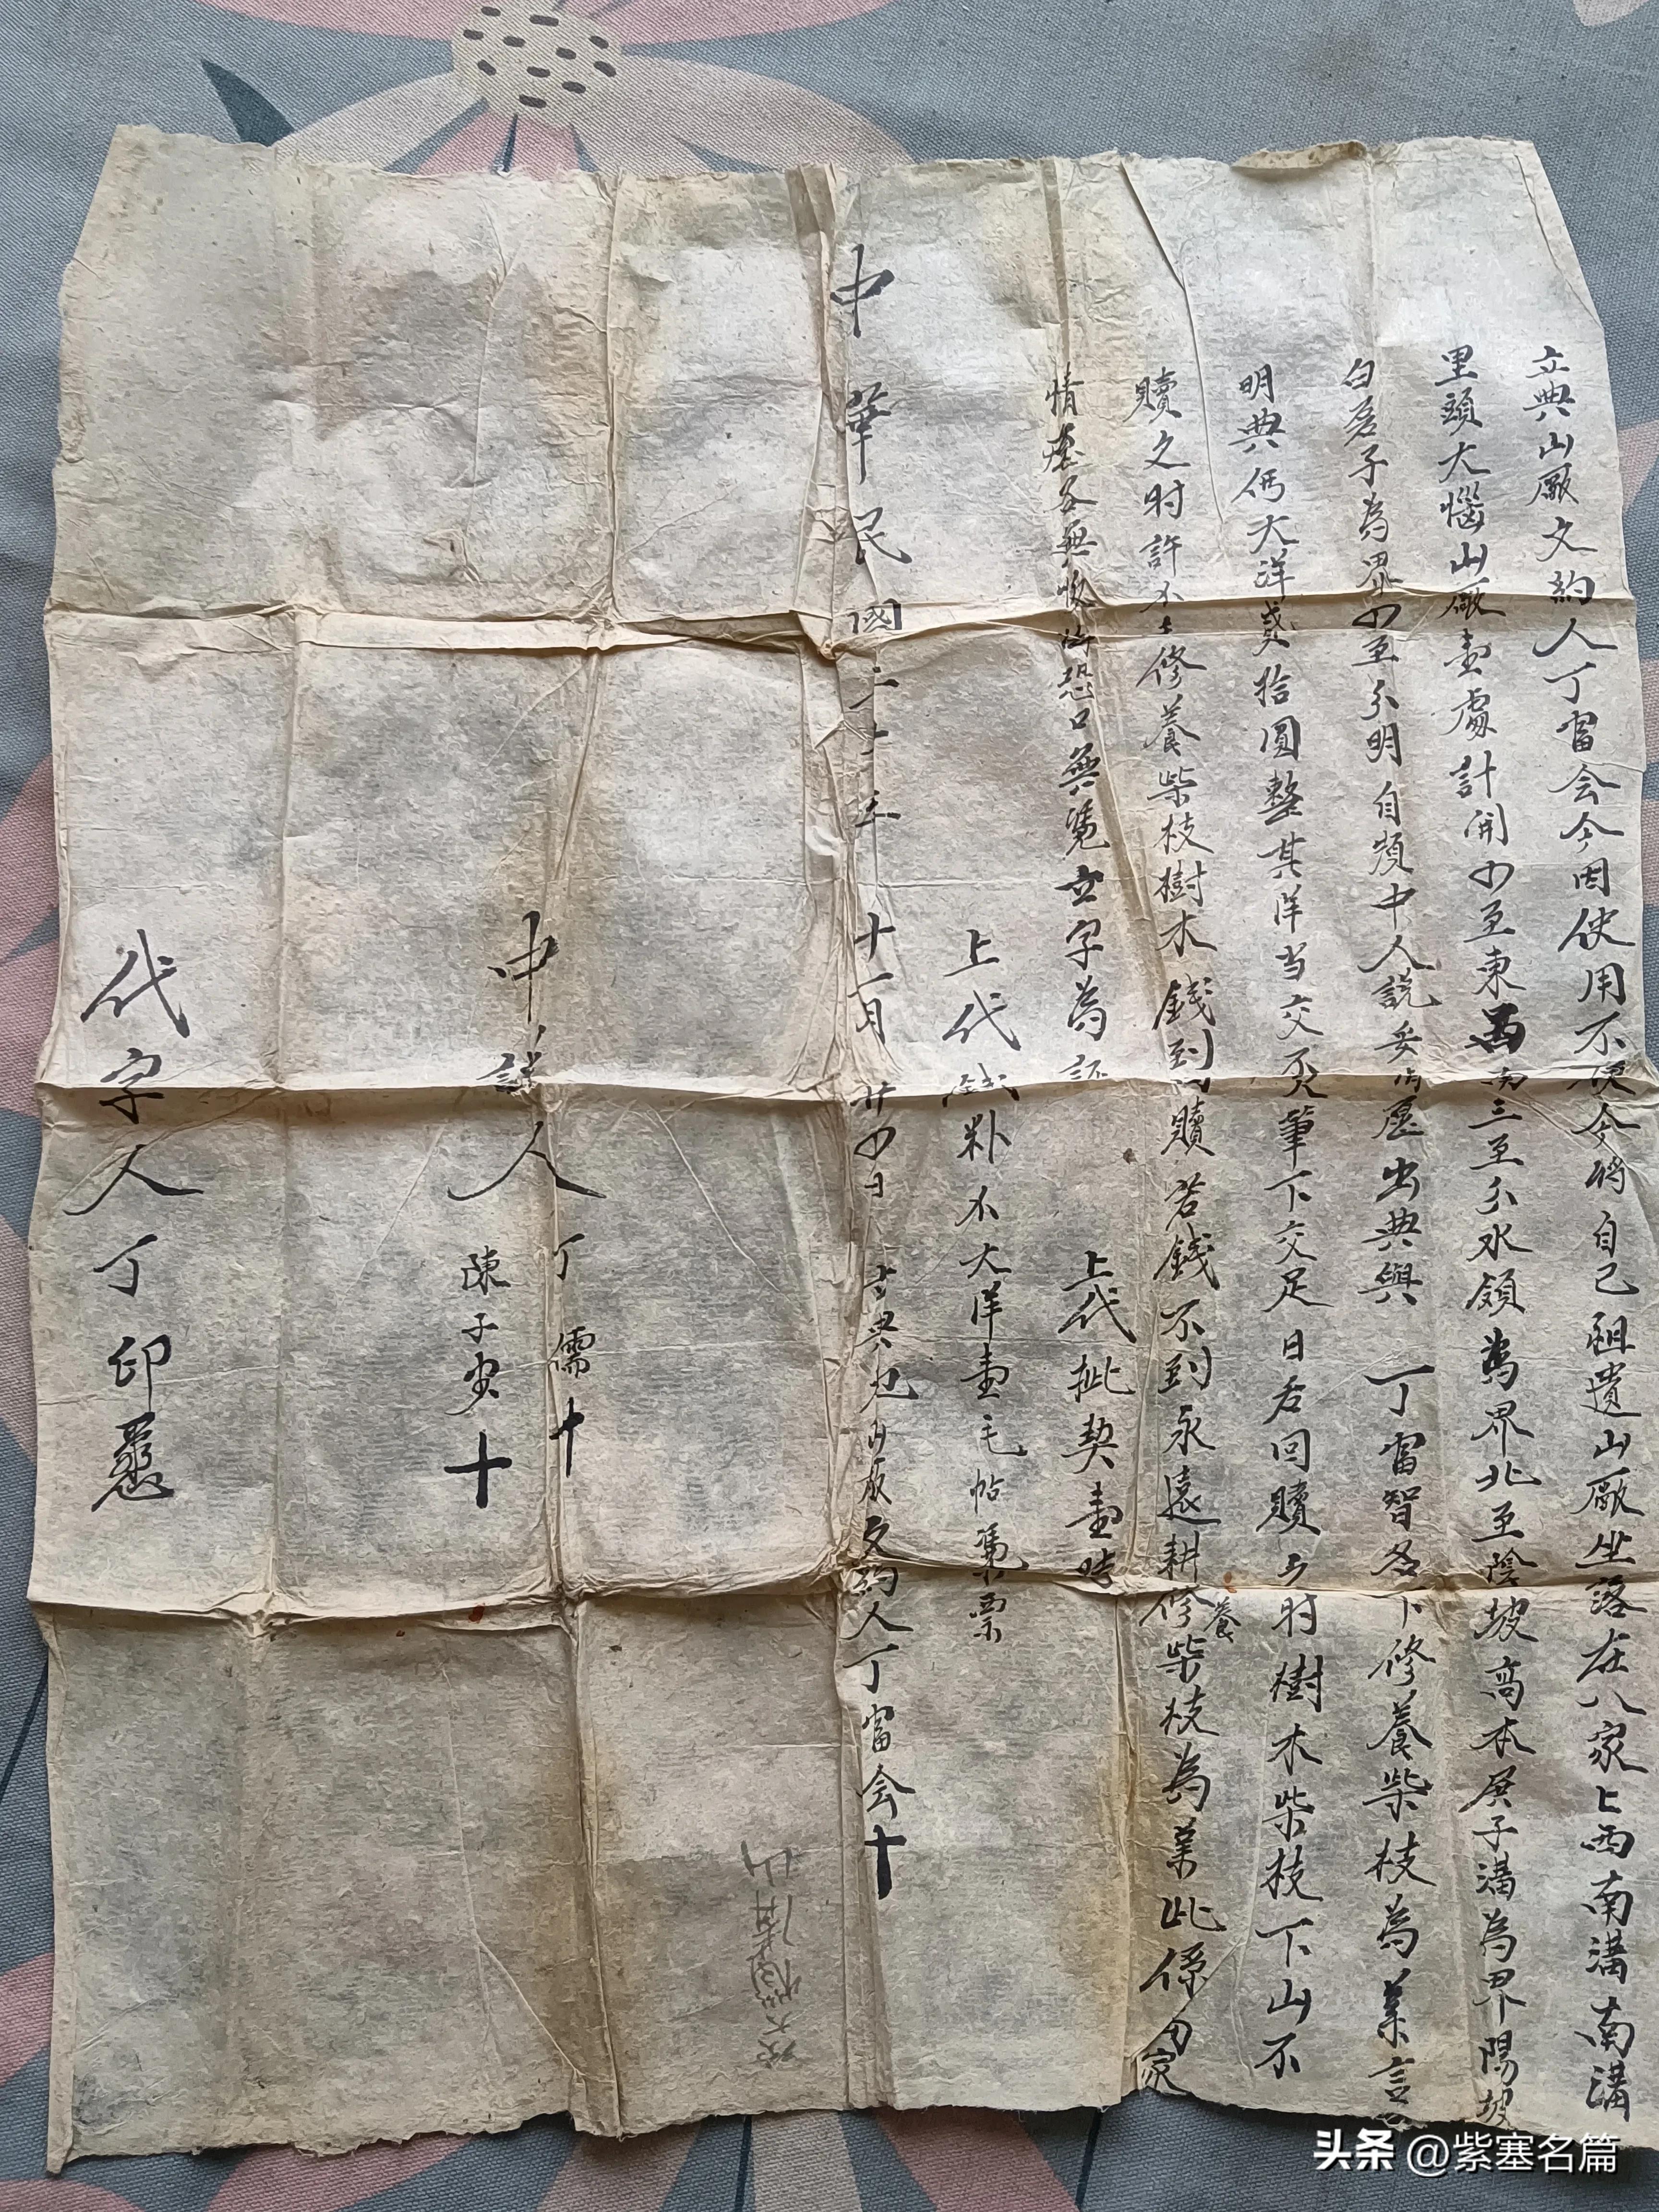 立典山厰文約人丁富会今因使用不便今将自己祖遺山厰坐落在八家上西南溝南溝
里頭大惱山厰壹處計開四至東西南三至分水領為界北至陰坡高本展子溝為界陽坡
白崖子為界四至分明自煩中人説妥情愿出典與丁富智名下修養柴枝為業言
明典価大洋貳拾圓整其洋当交不欠筆下交足日后回贖之时樹木柴枝下山不
贖之时許不 修養柴枝樹木錢到 贖若錢不到永遠耕修養柴枝為業此係两家
情愿各無 恐口無憑立字為証
上代批契壹
上代錢粮 大洋壹毛帖 票
中華民國二十五年十一月廿四日立典 山厰文約人丁富会十
中証人丁儒十
陳子 十
代字人丁印
大惱 山
头条 @紫塞名篇